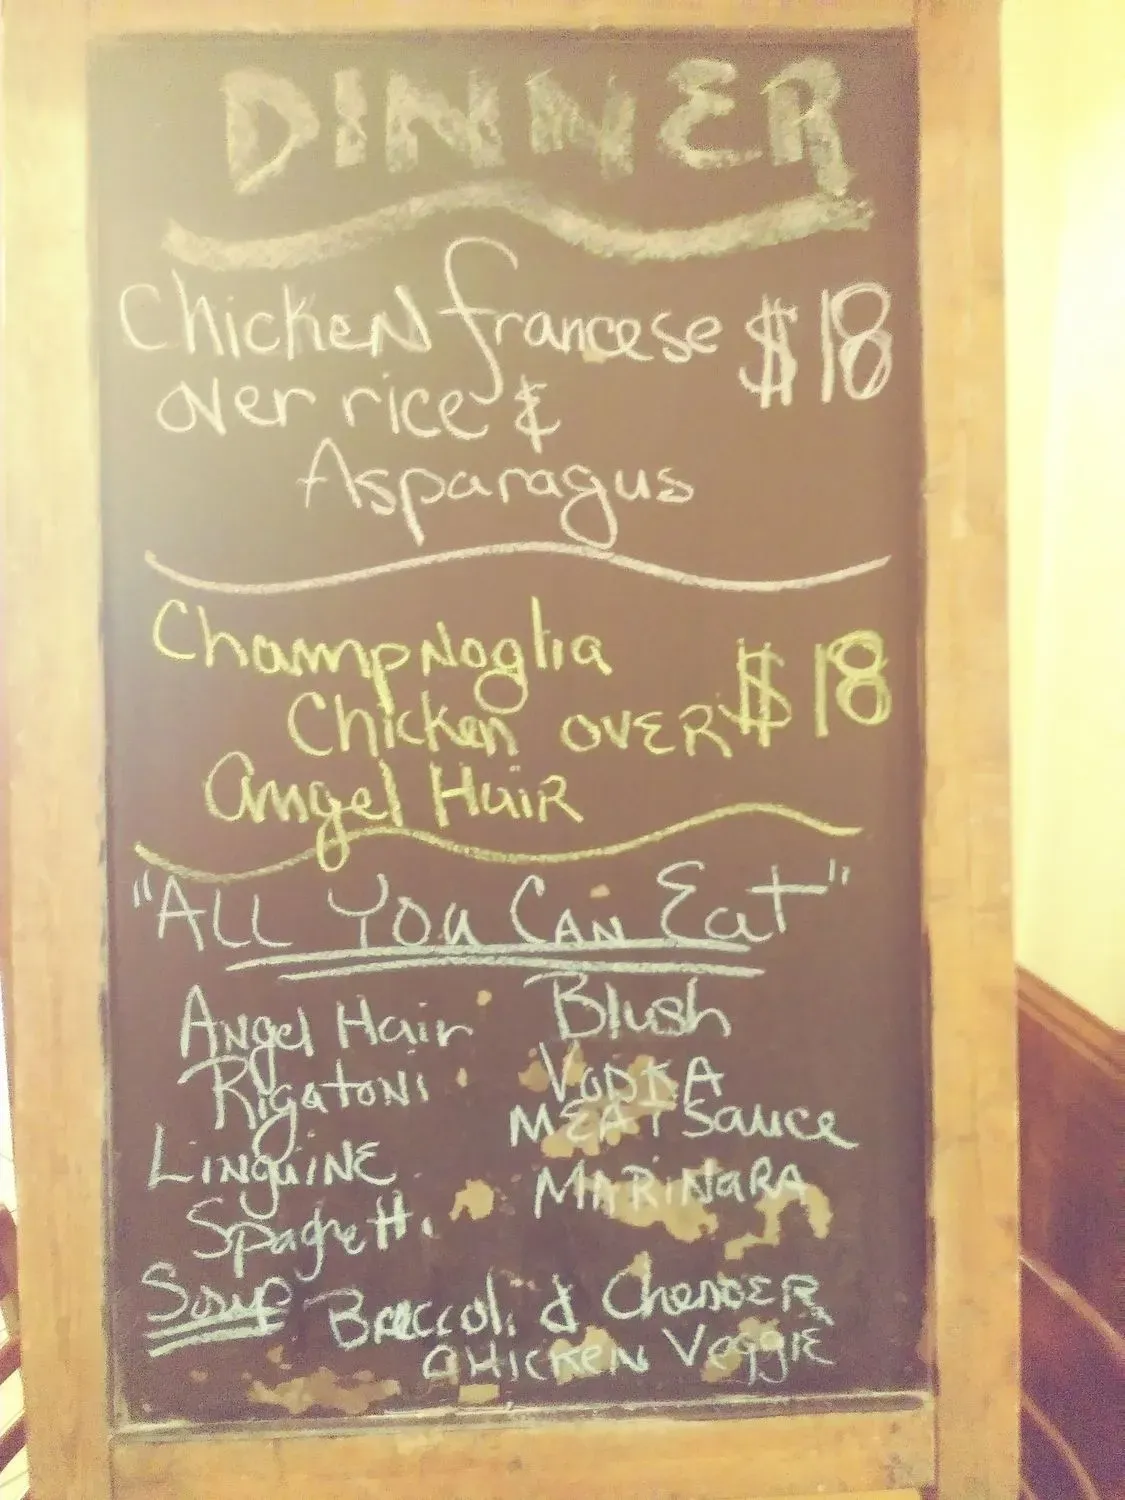 DINNER
Chicken francese $18
over rice &
Asparagus
Champnoglia
Chicken OVER $18
Angel Hair
"ALL YOU CAN Eat"
Angel Hair Blush
Rigatoni VODKA
MEAT Sauce
LINguiNE
MARiNaRA
Spaghetti
Soup Broccoli & Cheddar
CHICKEN Veggie